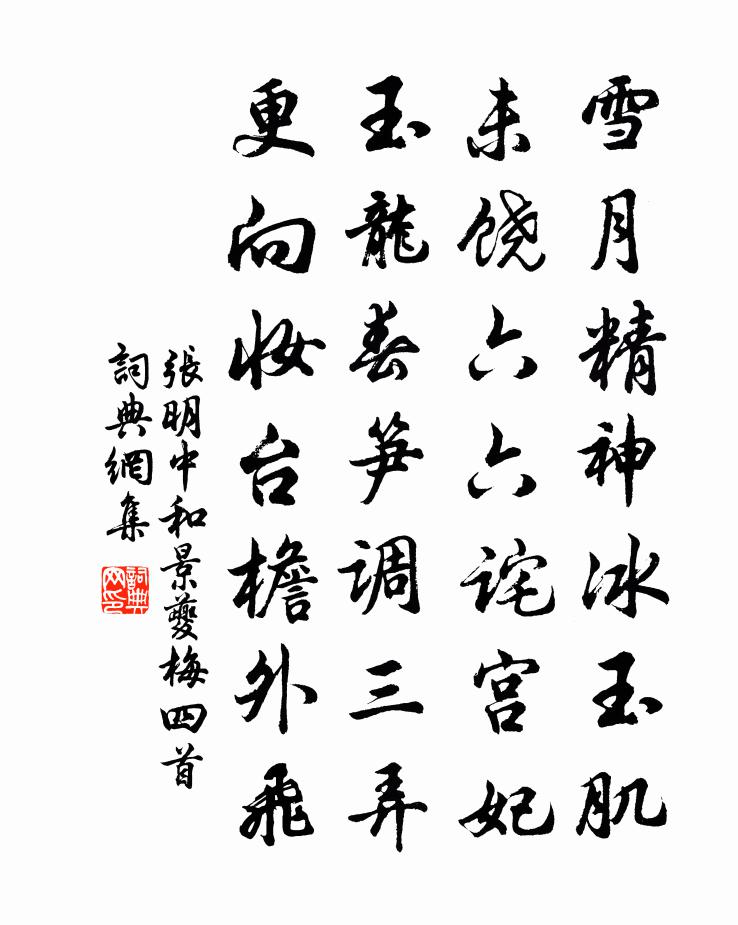 雪月精神冰玉肌
未饶六六诧宫妃
玉龍春笋调三弄
更向妝台檐外飛
張明中和景夔梅四首
詞典網集
詞典网印